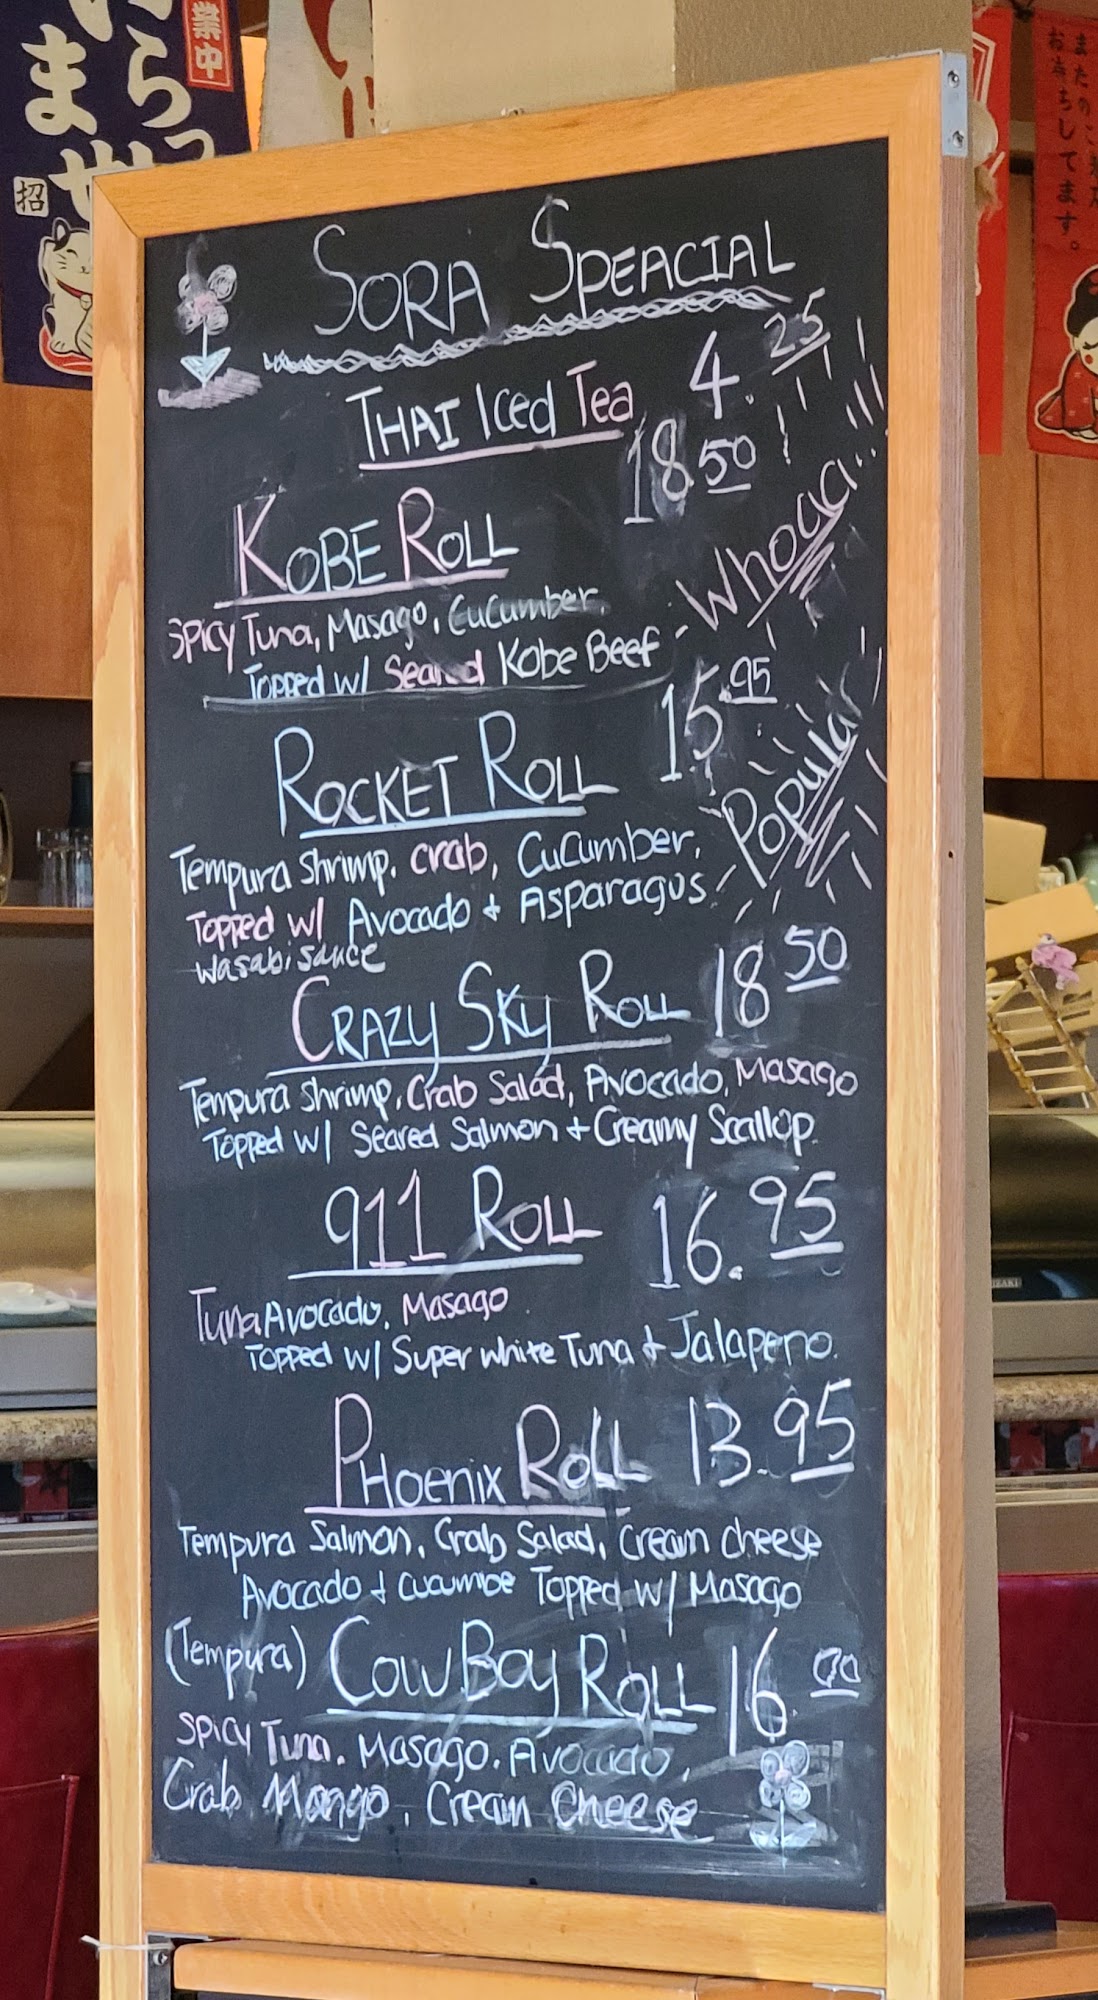 いらっ
ませ
業中
招
また
お待ちしてます。
SORA SPEACIAL
THAI Iced Tea 4.25
KOBE ROLL 18.50
Spicy Tuna, Masago, Cucumber,
Topped w/ Seared Kobe Beef - Whoaa...!!!
ROCKET ROLL 15.95
Tempura Shrimp, crab, Cucumber,
Topped w/ Avocado + Asparagus. Popular
Wasabi sauce
CRAZY SKY ROLL 18.50
Tempura Shrimp, Crab Salad, Avocado, Masago
Topped w/ Seared Salmon + Creamy Scallop.
911 ROLL 16.95
Tuna Avocado, Masago
Topped w/ Super white Tuna + Jalapeno.
PHOENIX ROLL 13.95
Tempura Salmon, Crab Salad, Cream cheese
Avocado + cucumbe Topped w/ Masago
(Tempura) COWBOY ROLL 16.00
Spicy Tuna, Masago, Avocado,
Crab Mango, Cream Cheese